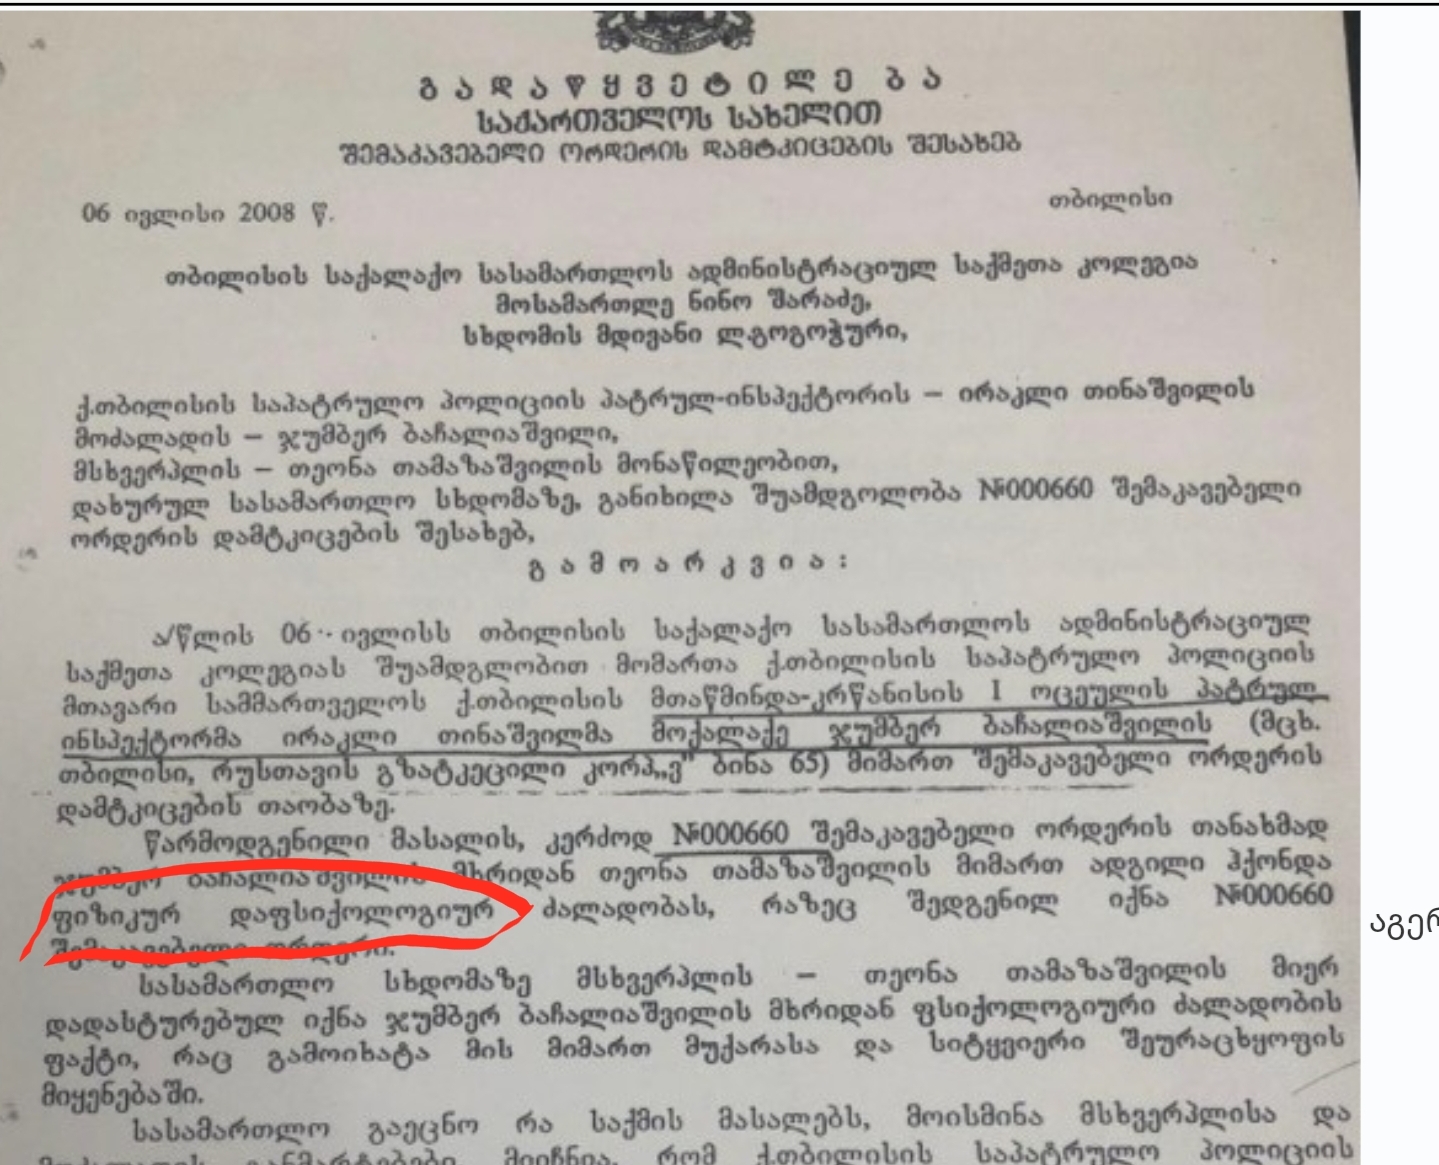 გ ა დ ა წ ყ ვ ე ტ ი ლ ე ბ ა
საქართველოს სახელით
შემაკავებელი ორდერის დამტკიცების შესახებ
06 ივლისი 2008 წ.
თბილისი
თბილისის საქალაქო სასამართლოს ადმინისტრაციულ საქმეთა კოლეგია
მოსამართლე ნინო შარაძე,
სხდომის მდივანი ლ.გოგოჭური,
ქ.თბილისის საპატრულო პოლიციის პატრულ-ინსპექტორის – ირაკლი თინაშვილის
მოძალადის – ჯუმბერ ბაჩალიაშვილი,
მსხვერპლის – თეონა თამაზაშვილის მონაწილეობით,
დახურულ სასამართლო სხდომაზე, განიხილა შუამდგოლობა №000660 შემაკავებელი
ორდერის დამტკიცების შესახებ,
გ ა მ ო ა რ კ ვ ი ა :
ა/წლის 06 ივლისს თბილისის საქალაქო სასამართლოს ადმინისტრაციულ
საქმეთა კოლეგიას შუამდგლობით მომართა ქ.თბილისის საპატრულო პოლიციის
მთავარი სამმართველოს ქ.თბილისის მთაწმინდა-კრწანისის I ოცეულის პატრულ
ინსპექტორმა ირაკლი თინაშვილმა მოქალაქე ჯუმბერ ბაჩალიაშვილის (მცხ.
თბილისი, რუსთავის გზატკეცილი კორპ„ვ" ბინა 65) მიმართ შემაკავებელი ორდერის
დამტკიცების თაობაზე.
წარმოდგენილი მასალის, კერძოდ №000660 შემაკავებელი ორდერის თანახმად
ჯუმბერ ბაჩალიაშვილის მხრიდან თეონა თამაზაშვილის მიმართ ადგილი ჰქონდა
ფიზიკურ დაფსიქოლოგიურ ძალადობას, რაზეც შედგენილ იქნა №000660
შემაკავებელი ორდერი.
სასამართლო სხდომაზე მსხვერპლის – თეონა თამაზაშვილის მიერ
დადასტურებულ იქნა ჯუმბერ ბაჩალიაშვილის მხრიდან ფსიქოლოგიური ძალადობის
ფაქტი, რაც გამოიხატა მის მიმართ მუქარასა და სიტყვიერი შეურაცხყოფის
მიყენებაში.
სასამართლო გაეცნო რა საქმის მასალებს, მოისმინა მსხვერპლისა და
მიიჩნია, რომ ქ.თბილისის საპატრულო პოლიციის